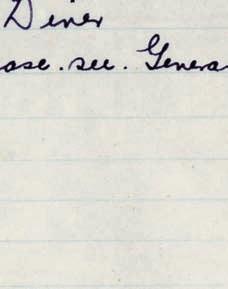 Diner
ase. see. Genera